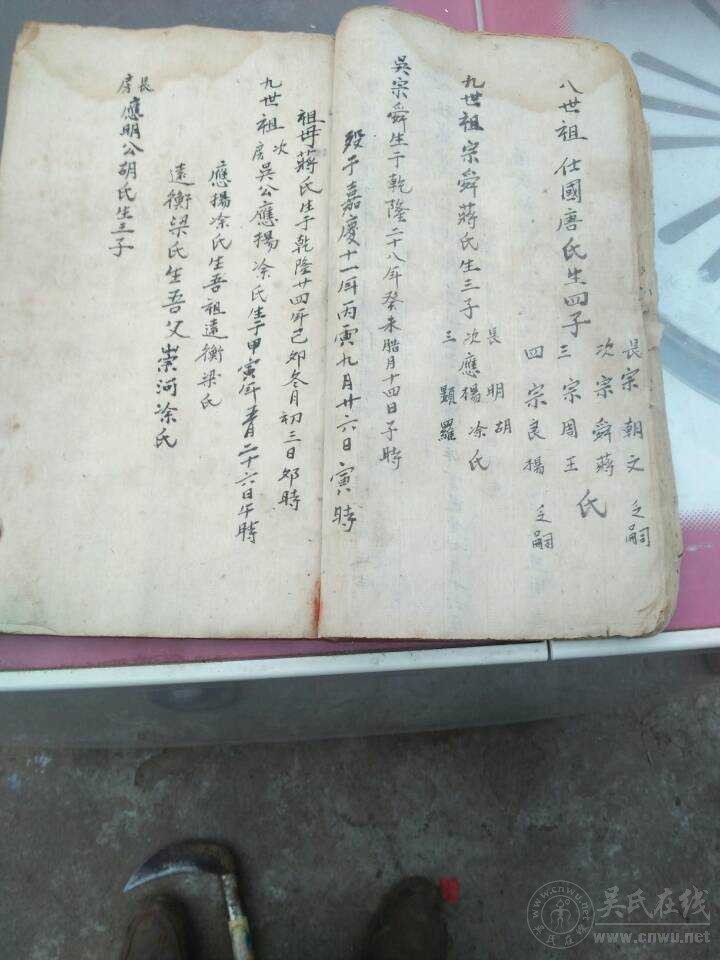 八世祖仕國唐氏生四子
長宗朝文 乏嗣
次宗舜蔣
三宗周王
氏
四宗良楊 乏嗣
九世祖宗舜蔣氏生三子
長明胡
次應楊凃氏
三顯羅
吳宗舜生于乾隆二十八年癸未腊月十四日子時
歿于嘉慶十一年丙寅九月廿六日寅時
祖母蔣氏生于乾隆廿四年己卯冬月初三日卯時
九世祖次房吳公應楊凃氏生于甲寅年月二十六日午時
應楊凃氏生吾祖遠衡梁氏
遠衡梁氏生吾父崇河凃氏
長房應明公胡氏生三子
吴氏在线
www.cnwu.net